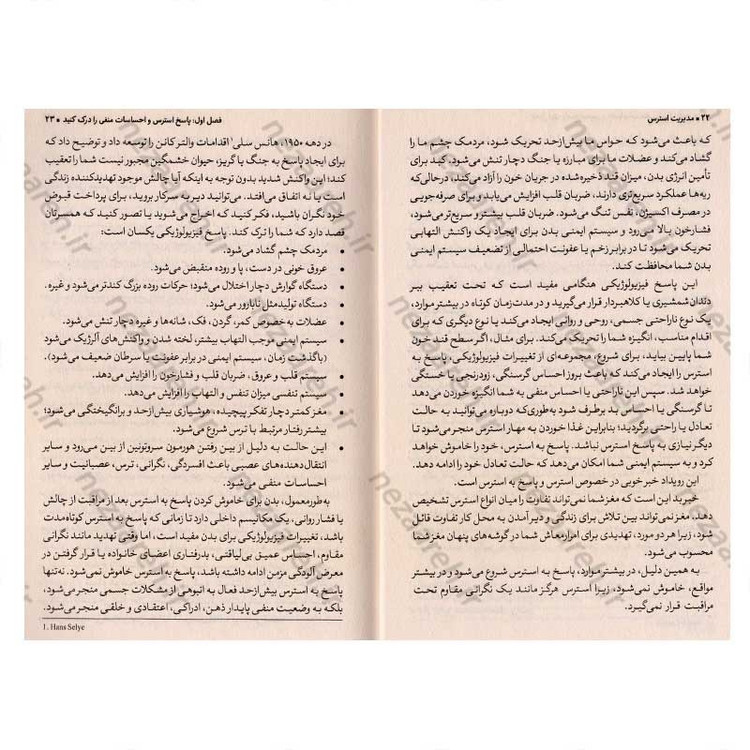 ۲۲ ■ مدیریت استرس
که باعث می‌شود که حواس ما بیش‌ازحد تحریک شود، مردمک چشم ما را
گشاد می‌کند و عضلات ما برای مبارزه یا جنگ دچار تنش می‌شود. کبد برای
تأمین انرژی بدن، میزان قند ذخیره‌شده در جریان خون را آزاد می‌کند، درحالی‌که
ریه‌ها عملکرد سریع‌تری دارند، ضربان قلب افزایش می‌یابد و برای صرفه‌جویی
در مصرف اکسیژن، نفس تنگ می‌شود. ضربان قلب بیشتر و سریع‌تر می‌شود،
فشارخون بالا می‌رود و سیستم ایمنی بدن برای ایجاد یک واکنش التهابی
تحریک می‌شود تا در برابر زخم یا عفونت احتمالی از تضعیف سیستم ایمنی
بدن شما محافظت کند.
این پاسخ فیزیولوژیکی هنگامی مفید است که تحت تعقیب ببر
دندان‌شمشیری یا کلاهبردار قرار می‌گیرید و در مدت‌زمان کوتاه در بیشتر موارد،
یک نوع ناراحتی جسمی، روحی و روانی ایجاد می‌کند یا نوع دیگری که برای
اقدام مناسب، انگیزه شما را تحریک می‌کند. برای مثال، اگر سطح قند خون
شما پایین بیاید، برای شروع، مجموعه‌ای از تغییرات فیزیولوژیکی، پاسخ به
استرس را ایجاد می‌کند که باعث بروز احساس گرسنگی، زودرنجی یا خستگی
خواهد شد. سپس این ناراحتی یا احساس منفی به شما انگیزه خوردن می‌دهد
تا گرسنگی یا احساس بد برطرف شود به‌طوری‌که دوباره می‌توانید به حالت
تعادل یا راحتی برگردید؛ بنابراین غذا خوردن به مهار استرس منجر می‌شود تا
دیگر نیازی به پاسخ استرس نباشد. پاسخ به استرس، خود را خاموش خواهد
کرد و به سیستم ایمنی شما امکان می‌دهد که حالت تعادل خود را ادامه دهد.
این رویداد خبر خوبی در خصوص استرس و پاسخ به استرس است.
خبر بد این است که مغز شما نمی‌تواند تفاوت را میان انواع استرس تشخیص
دهد. مغز نمی‌تواند بین تلاش برای زندگی و دیر آمدن به محل کار تفاوت قائل
شود، زیرا هر دو مورد، تهدیدی برای امرارمعاش شما در گوشه‌های پنهان مغز شما
محسوب می‌شود.
به همین دلیل، در بیشتر موارد، پاسخ به استرس شروع می‌شود و در بیشتر
مواقع، خاموش نمی‌شود، زیرا استرس هرگز مانند یک نگرانی مقاوم تحت
مراقبت قرار نمی‌گیرد.
فصل اول: پاسخ استرس و احساسات منفی را درک کنید ■ ۲۳
در دهه ۱۹۵۰، هانس سلی¹ اقدامات والتر کانن را توسعه داد و توضیح داد که
برای ایجاد پاسخ به جنگ یا گریز، حیوان خشمگین مجبور نیست شما را تعقیب
کند؛ این واکنش شدید بدن توجه به اینکه آیا چالش موجود تهدیدکننده زندگی
است یا نه اتفاق می‌افتد. می‌توانید دیر به سرکار بروید، برای پرداخت قبوض
خود نگران باشید، فکر کنید که اخراج می‌شوید یا تصور کنید که همسرتان
قصد دارد که شما را ترک کند. پاسخ فیزیولوژیکی یکسان است:
• مردمک چشم گشاد می‌شود.
• عروق خونی در دست، پا و روده منقبض می‌شود.
• دستگاه گوارش دچار اختلال می‌شود؛ حرکات روده بزرگ کندتر می‌شود و غیره.
• دستگاه تولیدمثل نابارور می‌شود.
• عضلات به‌خصوص کمر، گردن، فک، شانه‌ها و غیره دچار تنش می‌شود.
• سیستم ایمنی موجب التهاب بیشتر، لخته شدن و واکنش‌های آلرژیک می‌شود
(باگذشت زمان، سیستم ایمنی در برابر عفونت یا سرطان ضعیف می‌شود).
• سیستم قلب و عروق، ضربان قلب و فشارخون را افزایش می‌دهد.
• سیستم تنفسی میزان تنفس و التهاب را افزایش می‌دهد.
• مغز کمتر دچار تفکر پیچیده، هوشیاری بیش‌ازحد و برانگیختگی می‌شود؛
بیشتر رفتار مرتبط با ترس شروع می‌شود.
• این حالت به دلیل از بین رفتن هورمون سروتونین از بین می‌رود و سایر
انتقال‌دهنده‌های عصبی باعث افسردگی، نگرانی، ترس، عصبانیت و سایر
احساسات منفی می‌شود.
به‌طورمعمول، بدن برای خاموش کردن پاسخ به استرس بعد از مراقبت از چالش
یا فشار روانی، یک مکانیسم داخلی دارد تا زمانی که پاسخ به استرس کوتاه‌مدت
باشد. تغییرات فیزیولوژیکی برای بدن مفید است، اما وقتی تهدید مانند نگرانی
مقاوم، احساس عمیق بی‌لیاقتی، بدرفتاری اعضای خانواده یا قرار گرفتن در
معرض آلودگی مزمن ادامه داشته باشد، پاسخ به استرس خاموش نمی‌شود. نه‌تنها
پاسخ به استرس بیش‌ازحد فعال به انبوهی از مشکلات جسمی منجر می‌شود،
بلکه به وضعیت منفی پایدار ذهن، ادراکی، اعتقادی و خلقی منجر می‌شود.
1. Hans Selye
nezafreh.ir